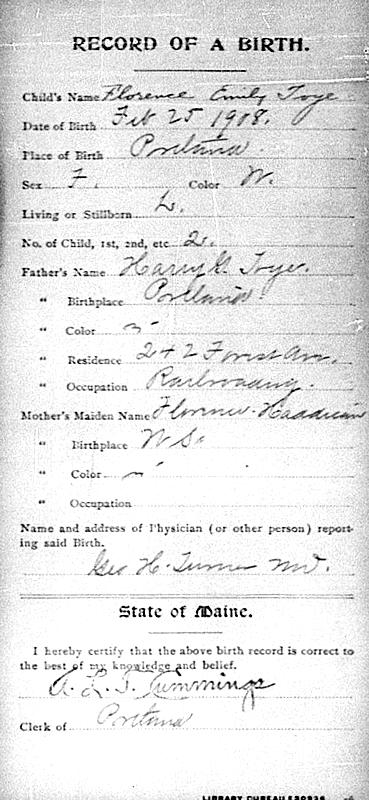 RECORD OF A BIRTH.
Child's Name Florence Emily Toye
Date of Birth Feb 25 1908.
Place of Birth Portland.
Sex F. Color W.
Living or Stillborn L.
No. of Child, 1st, 2nd, etc 2.
Father's Name Harry G. Toye.
" Birthplace Portland.
" Color
" Residence 242 Forest Ave.
" Occupation Railroading.
Mother's Maiden Name Florence
" Birthplace N S.
" Color
" Occupation
Name and address of Physician (or other person) report-
ing said Birth.
Geo H. Turner MD.
State of Maine.
I hereby certify that the above birth record is correct to
the best of my knowledge and belief.
A. L. T. Cummings
Clerk of Portland
LIBRARY BUREAU E30936